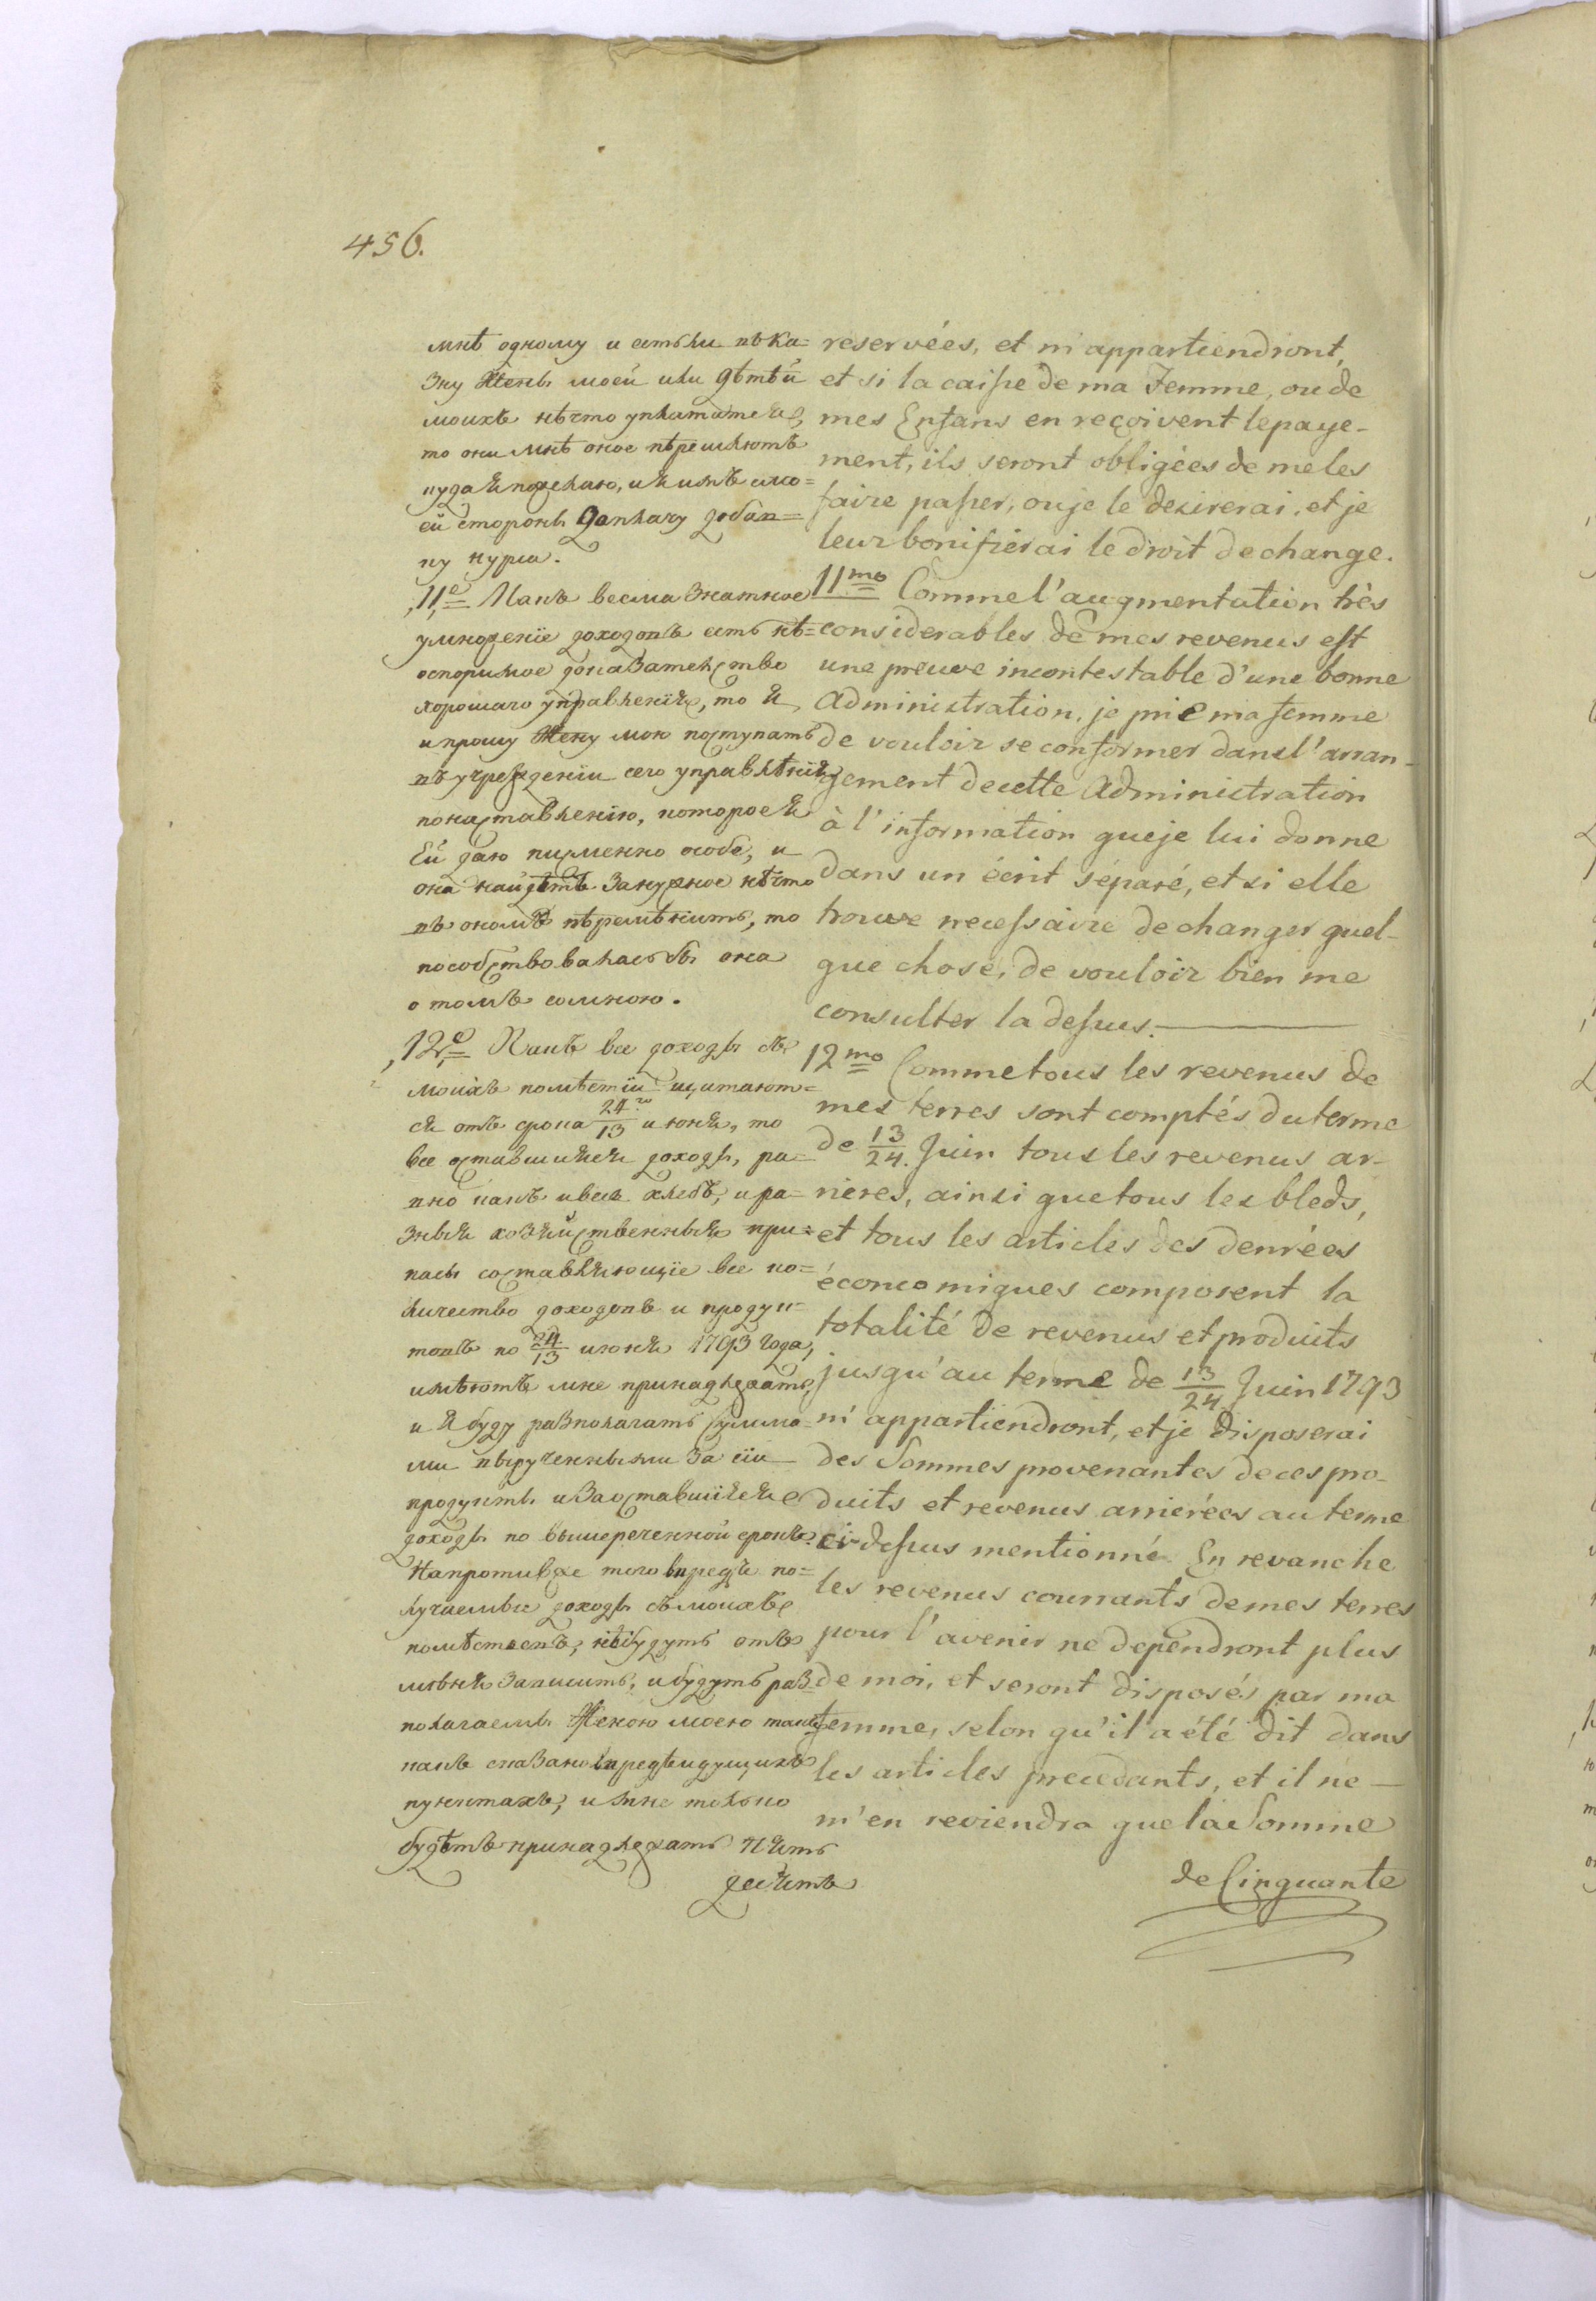 456.
мнѣ одному и естьли въ ка=
зну Женѣ моей или дѣтѣй
моихъ нѣчто уплатится,
то они мнѣ оное перешлютъ
куда я пожелаю, и я имъ смо=
ей стороны доплачу добав=
ку курса.
11е Какъ весма знатное
умноженіе доходовъ есть не=
оспоримое доказательство
хорошаго управленія, то я
и прошу Жену мою поступать
въ учрежденіи сего управлѣнія
по наставленію, которое я
Ей даю писменно особе, и
она найдѣтъ за нужное нѣчто
въ ономъ перемѣнить, то
пособствовалась бы она
о томъ со мною.
12е Какъ все доходы съ
моихъ помѣстіи щитают=
ся отъ срока 24го/13 июня, то
все оставшияся доходы, ра=
вно какъ и весь хлебъ, и ра=
зныя хозяйственныя при=
пасы составляющіе все ко=
личество доходовъ и продук=
товъ по 24/13 июня 1793 года,
имѣютъ мне принадлежать,
и я буду разполагать сумма=
ми вырученными за сіи
продукты и за оставшіяся
доходы по вышереченной срокъ.
Напротив же того впредь по=
лучаемыя доходы съ моихъ
помѣстьевъ, не будутъ отъ
меня зависить, и будутъ раз=
полагаемы Женою моею такъ
какъ сказано в предъидущихъ
пунктахъ, и мне только
будѣтъ принадлежать пять
десятъ
reservées, et m'appartiendront,
et si la caisse de ma Femme, ou de
mes Enfans en reçoivent le paye-
ment, ils seront obligées de me les
faire passer, ou je le desirerai, et je
leur bonifierai le droit de change.
11mo Comme l'augmentation très
considerables de mes revenus est
une preuve incontestable d'une bonne
Administration, je prie ma femme
de vouloir se conformer dans l'arran-
gement de cette Administration
à l'information que je lui donne
dans un écrit séparé, et si elle
trouve necessaire de changer quel-
que chose, de vouloir bien me
consulter la dessus.
12mo Comme tous les revenus de
mes terres sont comptés du terme
de 13/24. Juin tous les revenus ar-
rieres, ainsi que tous les bleds,
et tous les articles des denrées
économiques composent la
totalité de revenus et produits
jusqu'au terme de 13/24 Juin 1793
m'appartiendront, et je disposerai
des Sommes provenantes de ces pro-
duits et revenus arrierées au terme
ci-dessus mentionné. En revanche
les revenus courrants de mes terres
pour l'avenir ne dependront plus
de moi, et seront disposés par ma
femme, selon qu'il a été dit dans
les articles precedants, et il ne
m'en reviendra que la Somme
de Cinquante